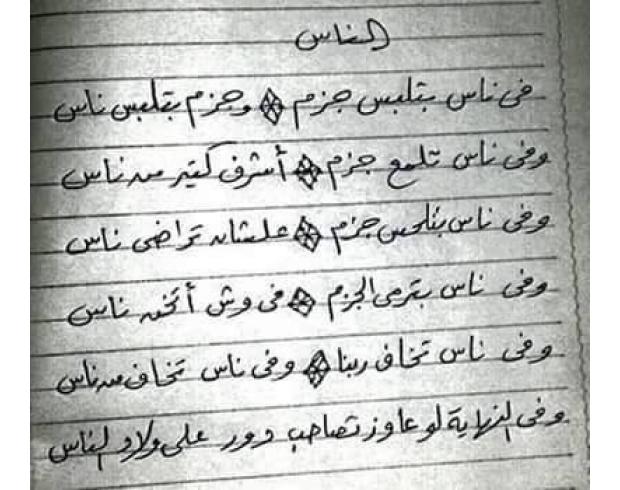 الناس
فى ناس بتلبس جزم وجزم بتلبس ناس
وفى ناس تلمع جزم أشرف كتير من ناس
وفى ناس بتلحس جزم علشان تراضى ناس
وفى ناس بترمى الجزم فى وش أتخن ناس
وفى ناس تخاف ربنا وفى ناس تخاف من ناس
وفى النهاية لو عاوز تصاحب دور على ولاد الناس